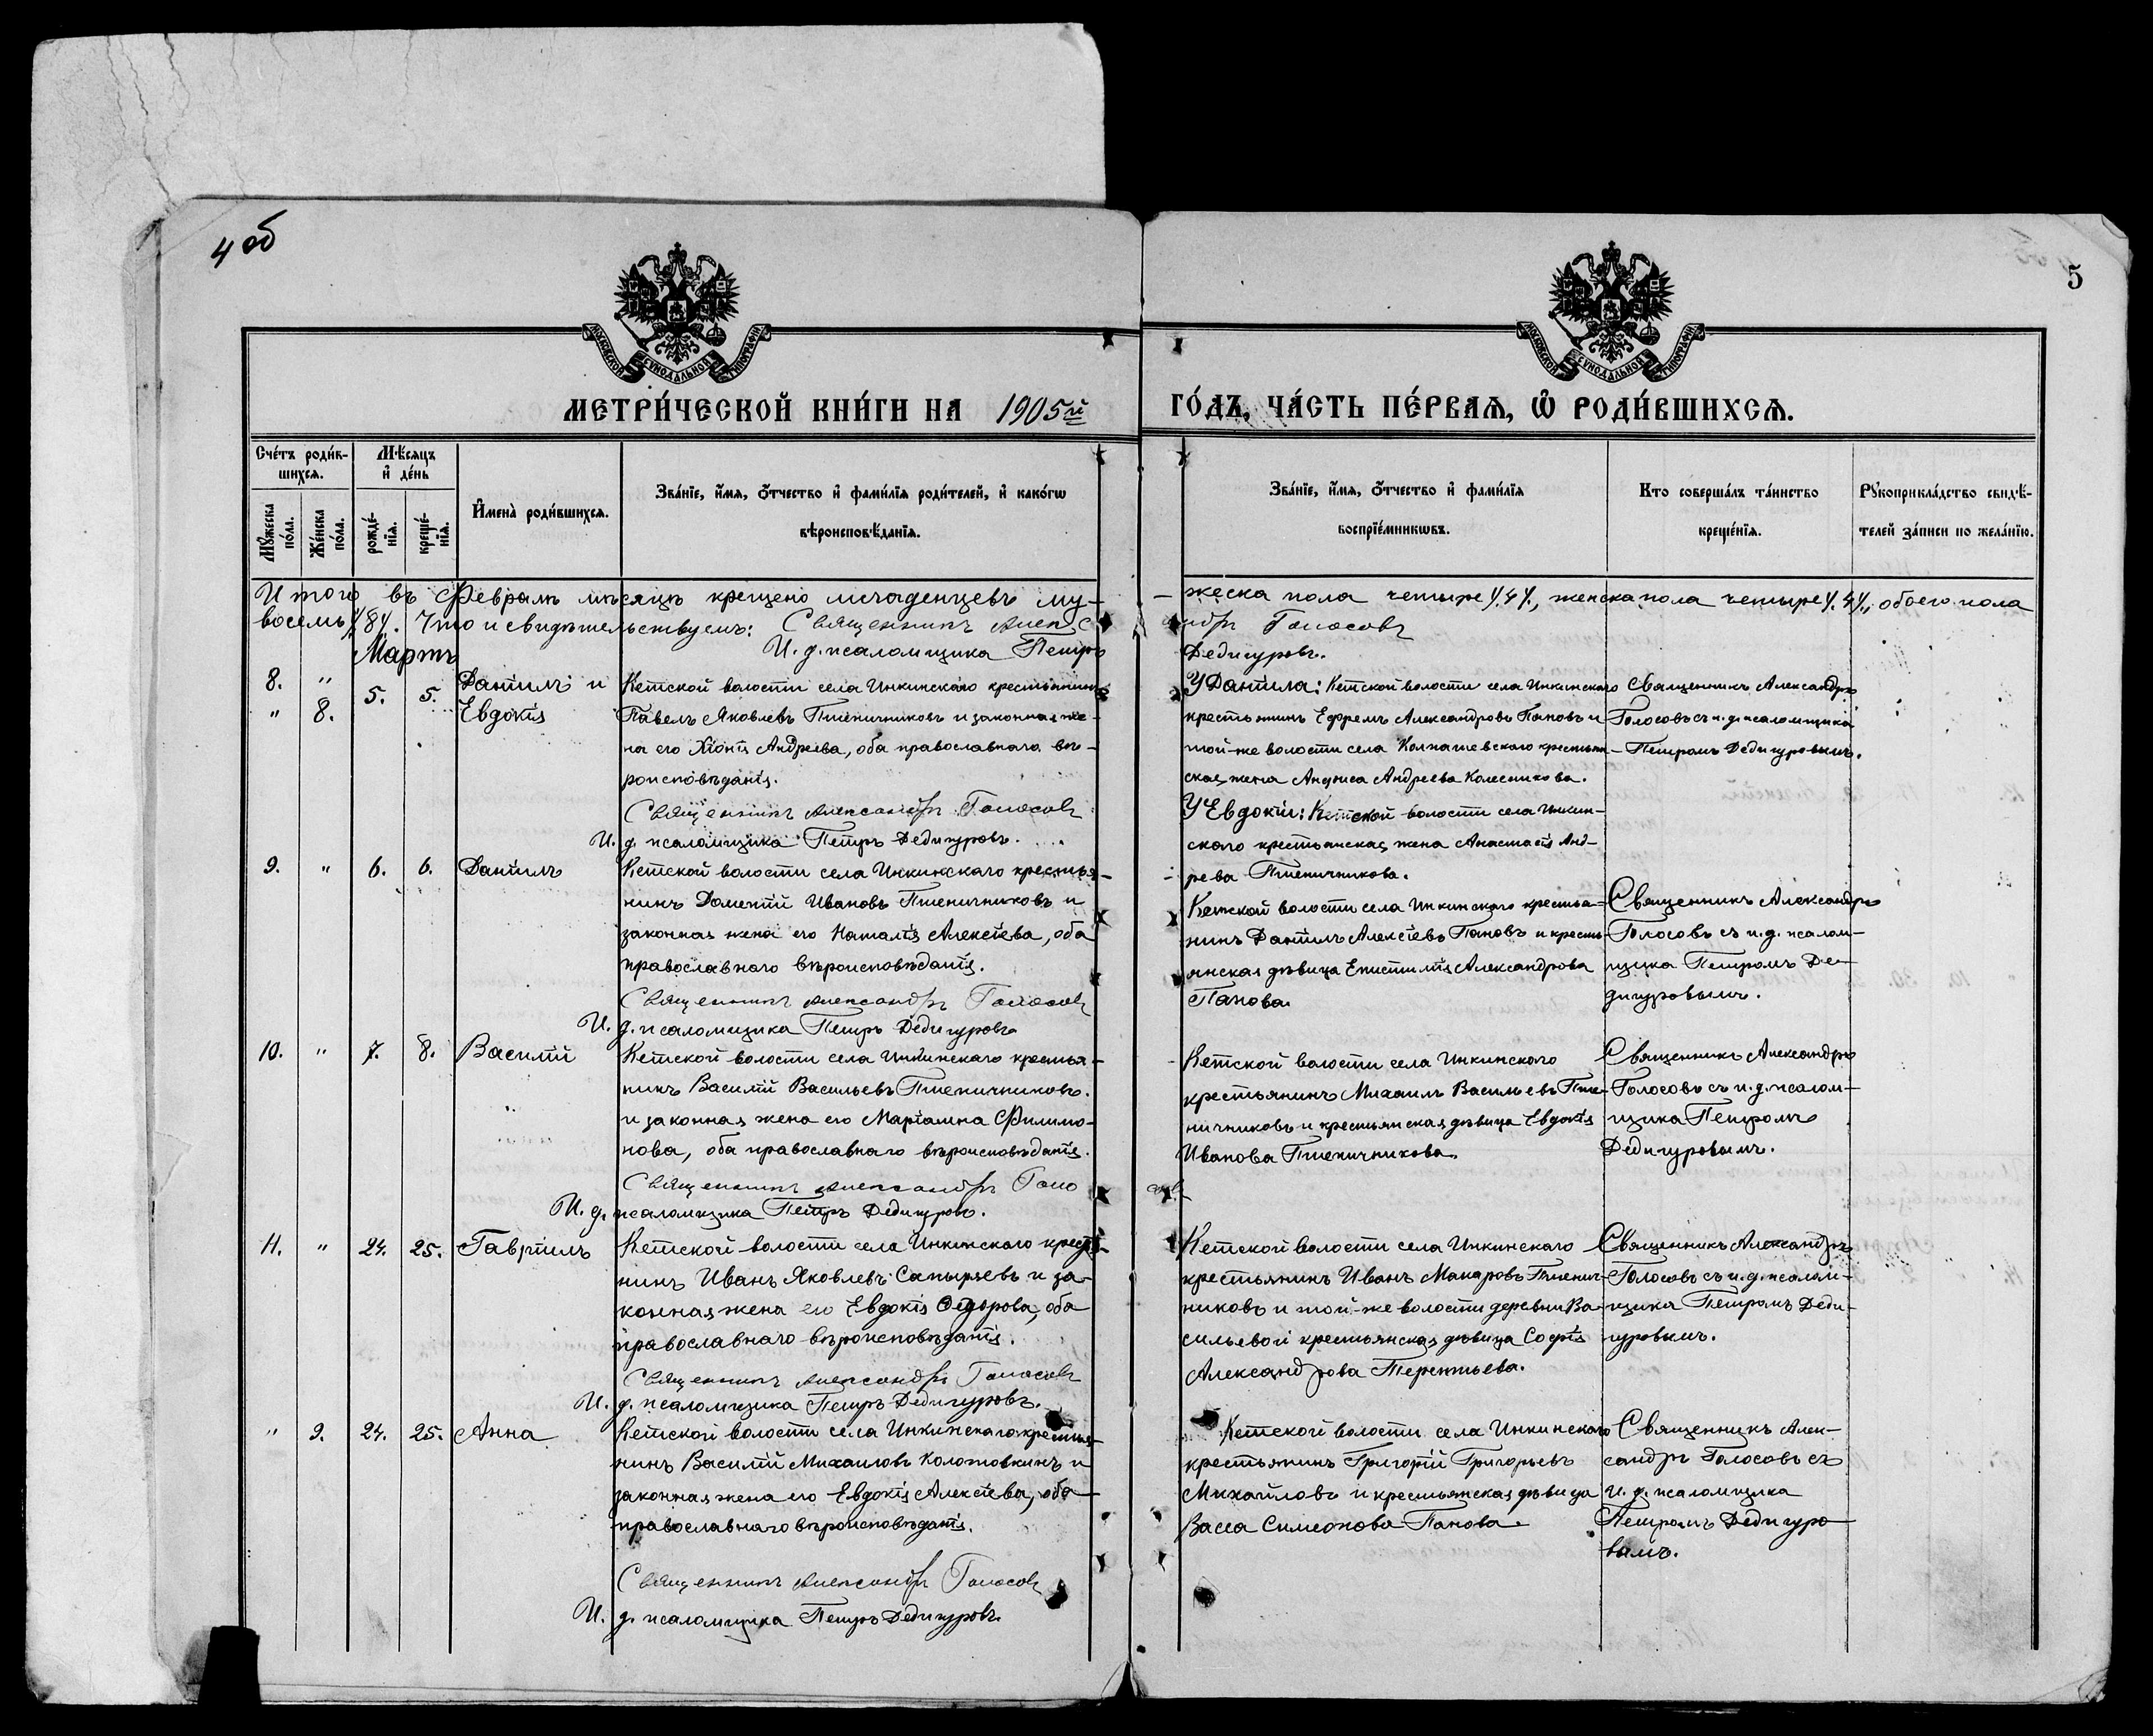 4 об
5
МОСКОВСКОЙ СѴНОДАЛЬНОЙ ТИПОГРАФІИ
МОСКОВСКОЙ СѴНОДАЛЬНОЙ ТИПОГРАФІИ
МЕТРИ́ЧЕСКОЙ КНИ́ГИ НА 1905й
ГО́ДЪ, ЧА́СТЬ ПЕ́РВАѦ, Ѡ РОДИ́ВШИХСѦ.
Сче́тъ роди́в-
шихсѧ.
Мꙋ́жеска
по́ла.
Же́нска
по́ла.
Мѣ́сѧцъ
и҆ де́нь
рожде́-
нїѧ.
креще́-
нїѧ.
И҆мена̀ роди́вшихсѧ.
Зва́нїе, и҆́мѧ, ѻ҆́тчество и҆ фами́лїѧ роди́телей, и҆ како́гѡ
вѣроисповѣ́данїѧ.
Зва́нїе, и҆́мѧ, ѻ҆́тчество и҆ фами́лїѧ
воспрїе́мникѡвъ.
Кто соверша́лъ та́инство
креще́нїѧ.
Рꙋкоприкла́дство свидѣ́-
телей за́писи по жела́нїю.
Итого въ Февралѣ мѣсяцѣ крещено младенцевъ му-
жеска пола четыре /.4/., женска пола четыре /.4/., обоего пола
восемь /.8/. Что и свидѣтельствуемъ: Священникъ Александръ Голосовъ
И. д. псаломщика Петръ Дедигуровъ.
Мартъ
8. " 5. 5. Даніилъ и
" 8. Евдокія
Кетской волости села Инкинскаго крестьянинъ
Павелъ Яковлевъ Пшеничниковъ и законная же-
на его Хіонія Андреева, оба православнаго вѣ-
роисповѣданія.
Священникъ Александръ Голосовъ
И. д. псаломщика Петръ Дедигуровъ.
У Даніила: Кетской волости села Инкинскаго
крестьянинъ Ефремъ Александровъ Пановъ и
той-же волости села Колпашевскаго крестьян-
ская жена Анфиса Андреева Колесникова.
У Евдокіи: Кетской волости села Инкин-
скаго крестьянская жена Анастасія Анд-
реева Пшеничникова.
Священникъ Александръ
Голосовъ съ и. д. псаломщика
Петромъ Дедигуровымъ.
9. " 6. 6. Даніилъ
Кетской волости села Инкинскаго крестья-
нинъ Дометій Ивановъ Пшеничниковъ и
законная жена его Наталія Алексіева, оба
православнаго вѣроисповѣданія.
Священникъ Александръ Голосовъ
И. д. псаломщика Петръ Дедигуровъ
Кетской волости села Инкинскаго крестья-
нинъ Даніилъ Алексіевъ Пановъ и кресть-
янская дѣвица Епистимія Александрова
Панова.
Священникъ Александръ
Голосовъ съ и. д. псалом-
щика Петромъ Де-
дигуровымъ.
10. " 7. 8. Василій
Кетской волости села Инкинскаго крестья-
нинъ Василій Васильевъ Пшеничниковъ
и законная жена его Маріамна Филимо-
нова, оба православнаго вѣроисповѣданія.
Священникъ Александръ Голосовъ
И. д. псаломщика Петръ Дедигуровъ.
Кетской волости села Инкинскаго
крестьянинъ Михаилъ Васильевъ Пше-
ничниковъ и крестьянская дѣвица Евдокія
Иванова Пшеничникова.
Священникъ Александръ
Голосовъ съ и. д. псалом-
щика Петромъ
Дедигуровымъ.
11. " 24. 25. Гавріилъ
Кетской волости села Инкинскаго кресть-
нинъ Иванъ Яковлевъ Сапыряевъ и за-
конная жена его Евдокія Ѳедорова, оба
православнаго вѣроисповѣданія.
Священникъ Александръ Голосовъ
И. д. псаломщика Петръ Дедигуровъ.
Кетской волости села Инкинскаго
крестьянинъ Иванъ Макаровъ Пшенич-
никовъ и той-же волости деревни Ва-
сильевой крестьянская дѣвица Софія
Александрова Терентьева.
Священникъ Александръ
Голосовъ съ и. д. псалом-
щика Петромъ Деди-
гуровымъ.
" 9. 24. 25. Анна
Кетской волости села Инкинскаго крестья-
нинъ Василій Михаиловъ Коломовкинъ и
законная жена его Евдокія Алексіева, оба
православнаго вѣроисповѣданія.
Священникъ Александръ Голосовъ
И. д. псаломщика Петръ Дедигуровъ.
Кетской волости села Инкинскаго
крестьянинъ Григорій Григорьевъ
Михайловъ и крестьянская дѣвица
Васса Симеонова Панова.
Священникъ Алек-
сандръ Голосовъ съ
и. д. псаломщика
Петромъ Дедигуро-
вымъ.